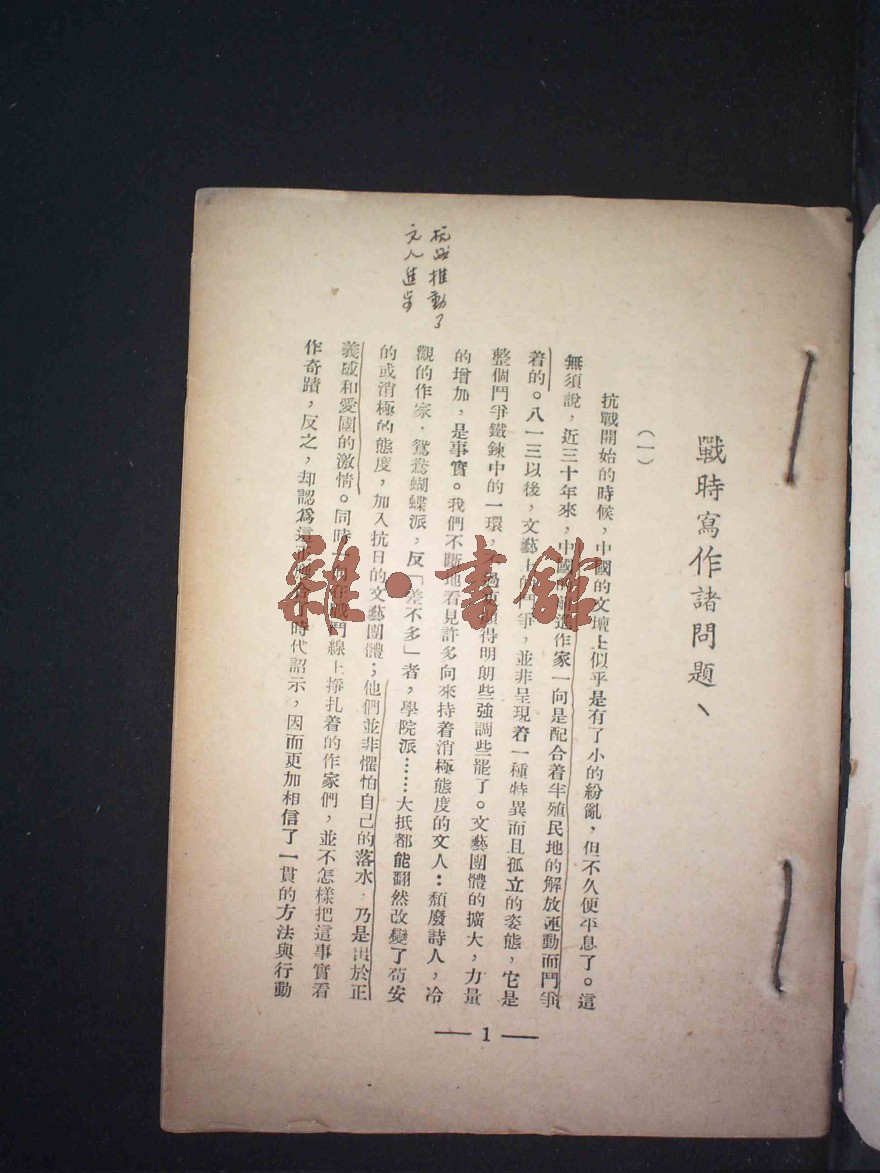 戰時寫作諸問題、
(一)
抗戰開始的時候，中國的文壇上似乎是有了小的紛亂，但不久便平息了。這
無須說，近三十年來，中國的新進作家一向是配合着半殖民地的解放運動而鬥爭
着的。八一三以後，文藝上的鬥爭，並非呈現着一種特異而且孤立的姿態，它是
整個鬥爭鐵鍊中的一環，不過更顯得明朗些強調些罷了。文藝團體的擴大，力量
的增加，是事實。我們不斷地看見許多向來持着消極態度的文人：頹廢詩人，冷
觀的作家，鴛鴦蝴蝶派，反「差不多」者，學院派……大抵都能翻然改變了苟安
的或消極的態度，加入抗日的文藝團體；他們並非懼怕自己的落水，乃是出於正
義感和愛國的激情。同時一向在戰鬥線上掙扎着的作家們，並不怎樣把這事實看
作奇蹟，反之，却認爲這正時代詔示，因而更加相信了一貫的方法與行動
— 1 —
抗战推動了
文人進步
雜·書館